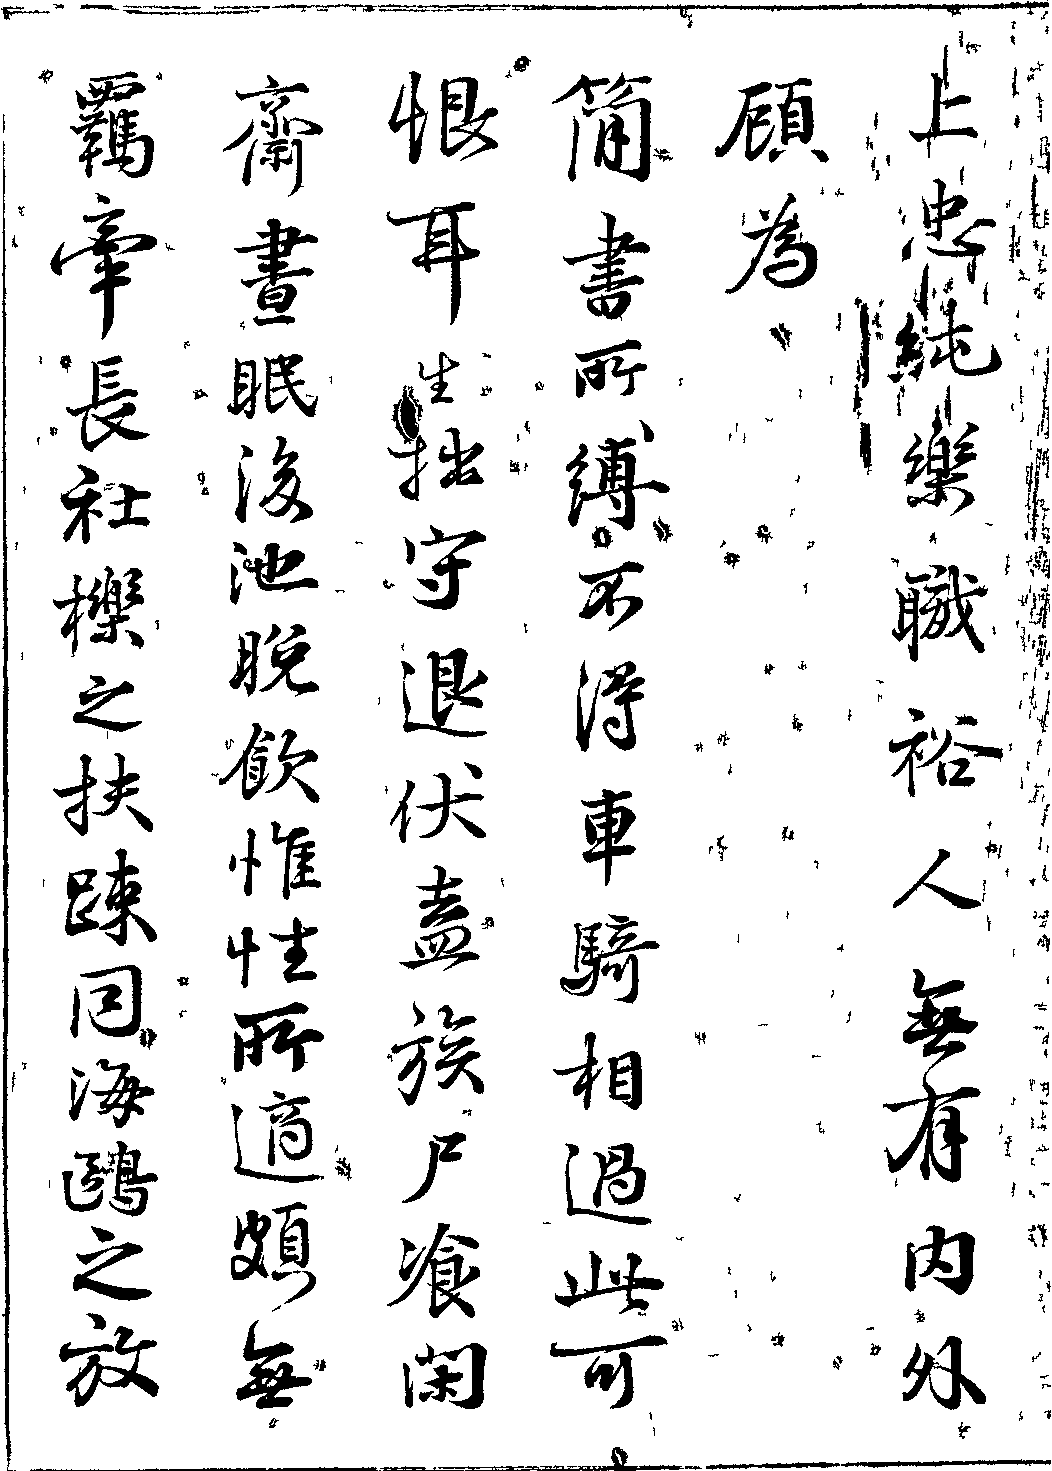 上忠純樂職裕人無有內外
顧為
簡書所縛不得車騎相過此可
恨耳生拙守退伏盍族尸飡閑
齋晝眠後池晚飲惟性所適頗無
羈牽長社櫟之扶踈同海鷗之放